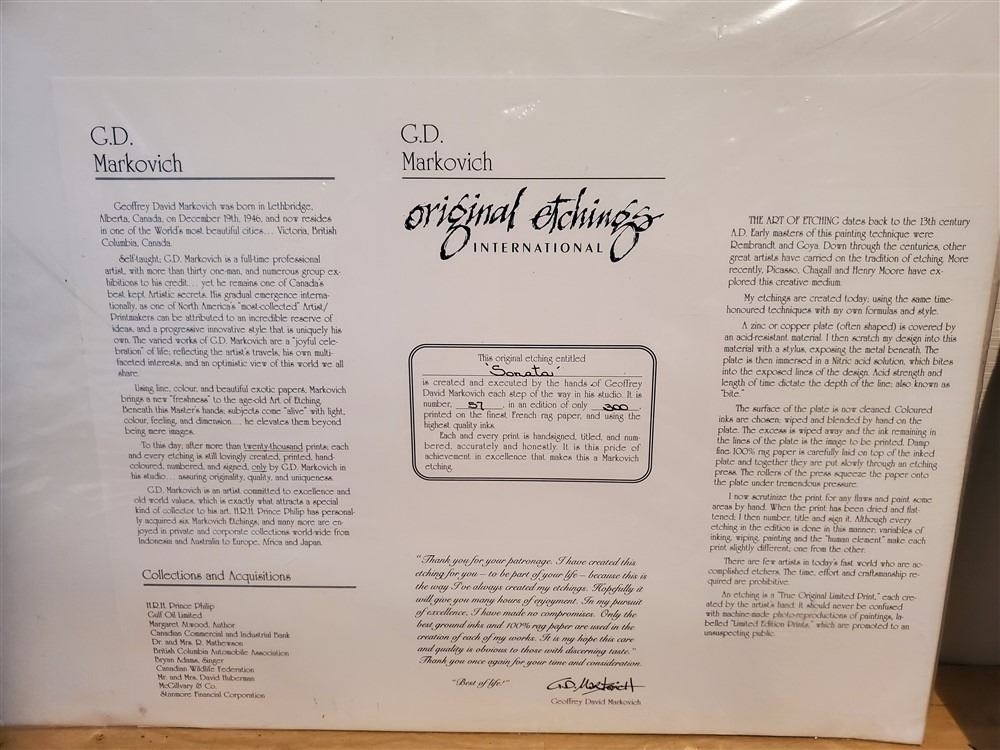 G.D.
Markovich
Geoffrey David Markovich was born in Lethbridge,
Alberta, Canada, on December 19th, 1946, and now resides
in one of the World's most beautiful cities... Victoria, British
Columbia, Canada.
Self-taught; G.D. Markovich is a full-time professional
artist, with more than thirty one-man, and numerous group ex-
hibitions to his credit... yet he remains one of Canada's
best kept Artistic secrets. His gradual emergence interna-
tionally, as one of North America's "most-collected" Artist/
Printmakers can be attributed to an incredible reserve of
ideas, and a progressive innovative style that is uniquely his
own. The varied works of G.D. Markovich are a "joyful cele-
bration" of life; reflecting the artist's travels, his own multi-
faceted interests, and an optimistic view of this world we all
share.
Using line, colour, and beautiful exotic papers, Markovich
brings a new "freshness" to the age-old Art of Etching.
Beneath this Master's hands; subjects come "alive" with light,
colour, feeling, and dimension... he elevates them beyond
being mere images.
To this day; after more than twenty-thousand prints; each
and every etching is still lovingly created, printed, hand-
coloured, numbered, and signed, only by G.D. Markovich in
his studio... assuring originality, quality, and uniqueness.
G.D. Markovich is an artist committed to excellence and
old world values, which is exactly what attracts a special
kind of collector to his art. H.R.H. Prince Philip has personal-
ly acquired six Markovich Etchings, and many more are en-
joyed in private and corporate collections world-wide from
Indonesia and Australia to Europe, Africa and Japan.
Collections and Acquisitions
H.R.H. Prince Philip
Gulf Oil Limited
Margaret Atwood, Author
Canadian Commercial and Industrial Bank
Dr. and Mrs. R. Mathewson
British Columbia Automobile Association
Bryan Adams, Singer
Canadian Wildlife Federation
Mr. and Mrs. David Huberman
McGillvary & Co.
Stanmore Financial Corporation
G.D.
Markovich
original etchings
INTERNATIONAL
This original etching entitled
'Sonata'
is created and executed by the hands of Geoffrey
David Markovich each step of the way in his studio. It is
number, 57, in an edition of only 300,
printed on the finest French rag paper, and using the
highest quality inks.
Each and every print is handsigned, titled, and num-
bered, accurately and honestly. It is this pride of
achievement in excellence that makes this a Markovich
etching.
"Thank you for your patronage. I have created this
etching for you – to be part of your life – because this is
the way I've always created my etchings. Hopefully it
will give you many hours of enjoyment. In my pursuit
of excellence, I have made no compromises. Only the
best ground inks and 100% rag paper are used in the
creation of each of my works. It is my hope this care
and quality is obvious to those with discerning taste."
Thank you once again for your time and consideration.
"Best of life!"
G.D. Markovich
Geoffrey David Markovich
THE ART OF ETCHING dates back to the 13th century
A.D. Early masters of this painting technique were
Rembrandt and Goya. Down through the centuries, other
great artists have carried on the tradition of etching. More
recently, Picasso, Chagall and Henry Moore have ex-
plored this creative medium.
My etchings are created today; using the same time-
honoured techniques with my own formulas and style.
A zinc or copper plate (often shaped) is covered by
an acid-resistant material. I then scratch my design into this
material with a stylus, exposing the metal beneath. The
plate is then immersed in a Nitric acid solution, which bites
into the exposed lines of the design. Acid strength and
length of time dictate the depth of the line; also known as
"bite."
The surface of the plate is now cleaned. Coloured
inks are chosen; wiped and blended by hand on the
plate. The excess is wiped away and the ink remaining in
the lines of the plate is the image to be printed. Damp
fine 100% rag paper is carefully laid on top of the inked
plate and together they are put slowly through an etching
press. The rollers of the press squeeze the paper onto
the plate under tremendous pressure.
I now scrutinize the print for any flaws and paint some
areas by hand. When the print has been dried and flat-
tened; I then number, title and sign it. Although every
etching in the edition is done in this manner; variables of
inking, wiping, painting and the "human element" make each
print slightly different; one from the other.
There are few artists in today's fast world who are ac-
complished etchers. The time, effort and craftsmanship re-
quired are prohibitive.
An etching is a "True Original Limited Print," each cre-
ated by the artist's hand. It should never be confused
with machine-made photo-reproductions of paintings, la-
belled "Limited Edition Prints," which are promoted to an
unsuspecting public.